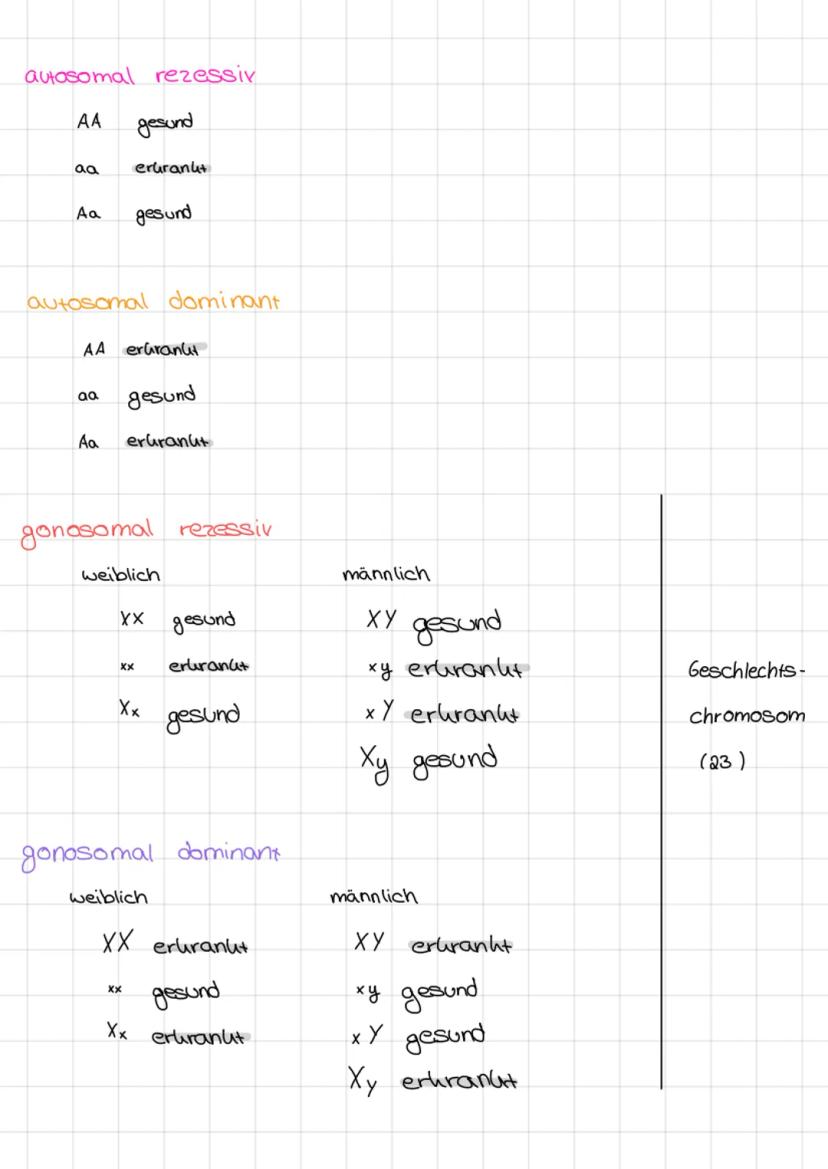 autosomal rezessiv
AA gesund
aa erkrankt
Aa gesund
autosomal dominant
AA erkrankt
aa gesund
Aa erkrankt
gonosomal rezessiv
weiblich männlich
XX gesund XY gesund
xx erkrankt xy erkrankt Geschlechts-
Xx gesund xY erkrankt chromosom
Xy gesund (23)
gonosomal dominant
weiblich männlich
XX erkrankt XY erkrankt
xx gesund xy gesund
Xx erkrankt xY gesund
Xy erkrankt